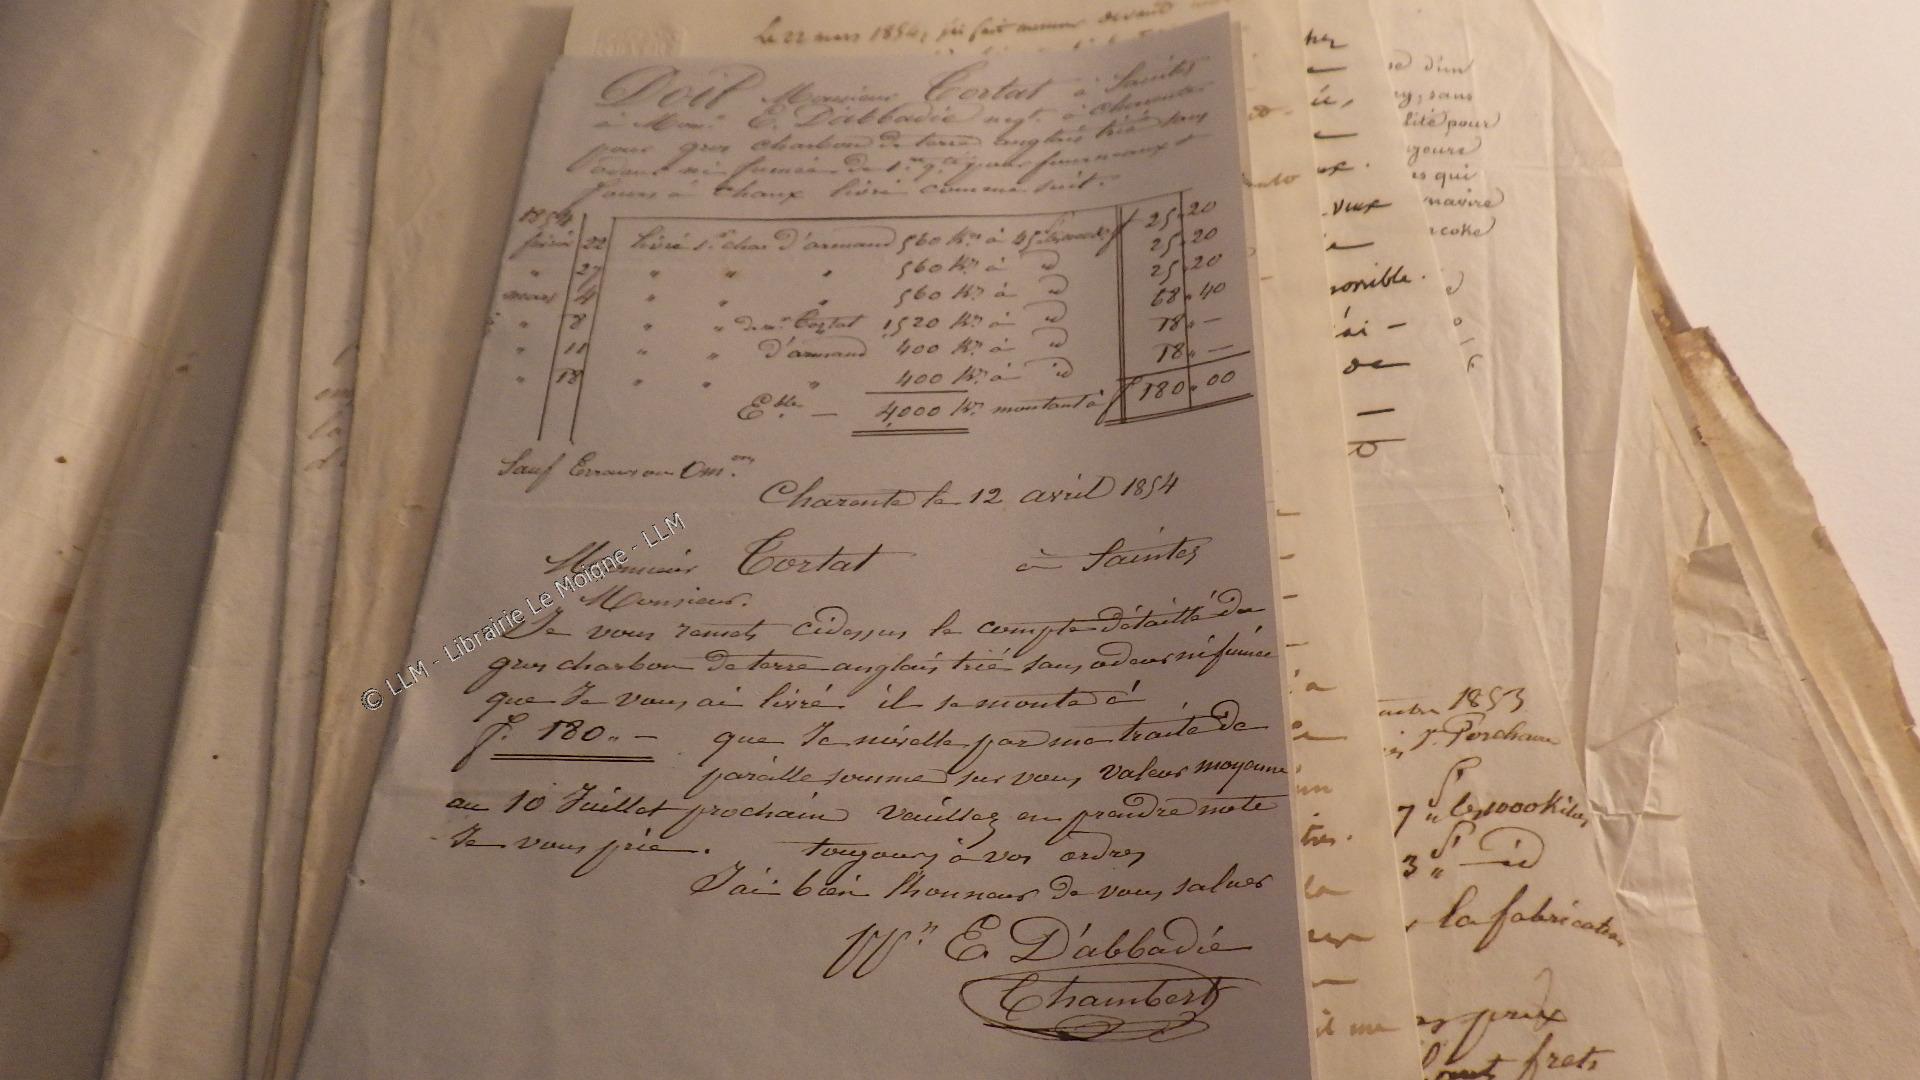 Le 22 mars 1854, j'ai fait
Doit Monsieur Tortat à Saintes
à Mons. E. D'abbadie negt. à Charente
pour gros charbon de terre anglais trié sans
odeur ni fumée de 1re qté pour fourneaux et
fours à chaux livré comme suit.
1854
février 22 livré sr char d'armand 560 Kos à 45f les 1000 k. f 25.20
" 27 " " " 560 Kos à id 25.20
mars 4 " " " 560 Kos à id 25.20
" 8 " " de mr Tortat 1520 Kos à id 68.40
" 11 " " d'armand 400 Kos à id 18 " —
" 18 " " " 400 Kos à id 18 " —
Eble — 4,000 Kos montant à f 180.00
Sauf Erreur ou Omon
Charente le 12 avril 1854
Monsieur Tortat à Saintes
Monsieur.
Je vous remets cidessus le compte détaillé du
gros charbon de terre anglais trié sans odeur ni fumée
que Je vous ai livré il se monte à
f. 180 " — que Je nivelle par ma traite de
pareille somme sur vous valeur moyenne
au 10 Juillet prochain veuillez en prendre note
Je vous prie. toujours à vos ordres
J'ai bien l'honneur de vous saluer
ppon E. D'abbadie
Chambert
© LLM - Librairie Le Moigne - LLM
se d'un
sans
lité pour
es qui
navire
coke
vieux
ssible.
j'ai —
de
1853
r. Porchaire
7 " f les 1000 Kilos
3 " f id
la fabrication
prix
frets